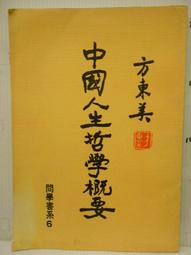 方東美
中國人生哲學概要
問學書系6